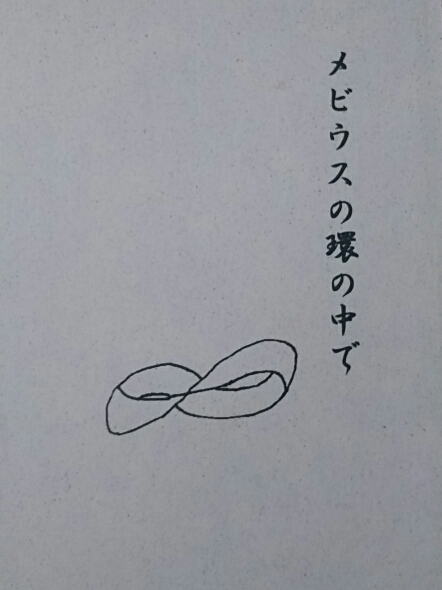 メビウスの環の中で